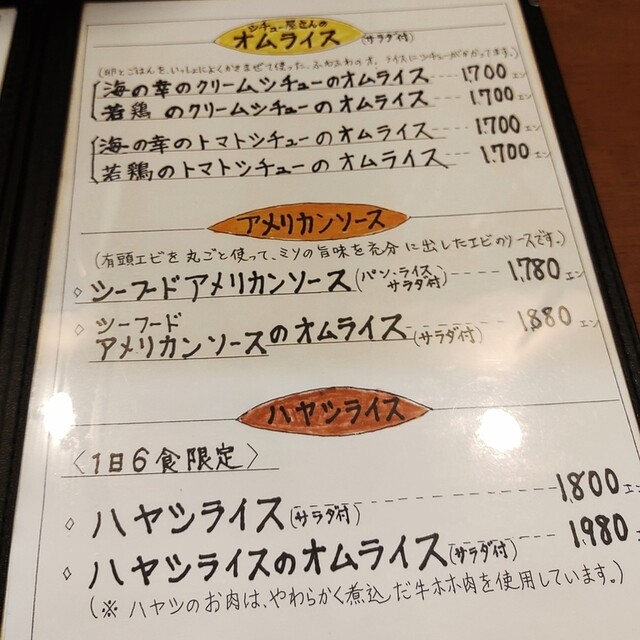 シチュー屋さんの
オムライス (サラダ付)
(卵とごはんを、いっしょによくかきまぜて使った、ふわふわのオムライスにシチューがかかってます。)
海の幸のクリームシチューのオムライス 1,700エン
若鶏のクリームシチューのオムライス 1,700エン
海の幸のトマトシチューのオムライス 1,700エン
若鶏のトマトシチューのオムライス 1,700エン
アメリカンソース
(有頭エビを丸ごと使って、ミソの旨味を充分に出したエビのソースです。)
◇シーフードアメリカンソース(パン・ライス サラダ付) 1,780エン
◇シーフード
アメリカンソースのオムライス(サラダ付) 1,880エン
ハヤシライス
〈1日6食限定〉
◇ハヤシライス(サラダ付) 1,800エン
◇ハヤシライスのオムライス(サラダ付) 1,980エン
(※ハヤシのお肉は、やわらかく煮込んだ牛ホホ肉を使用しています。)